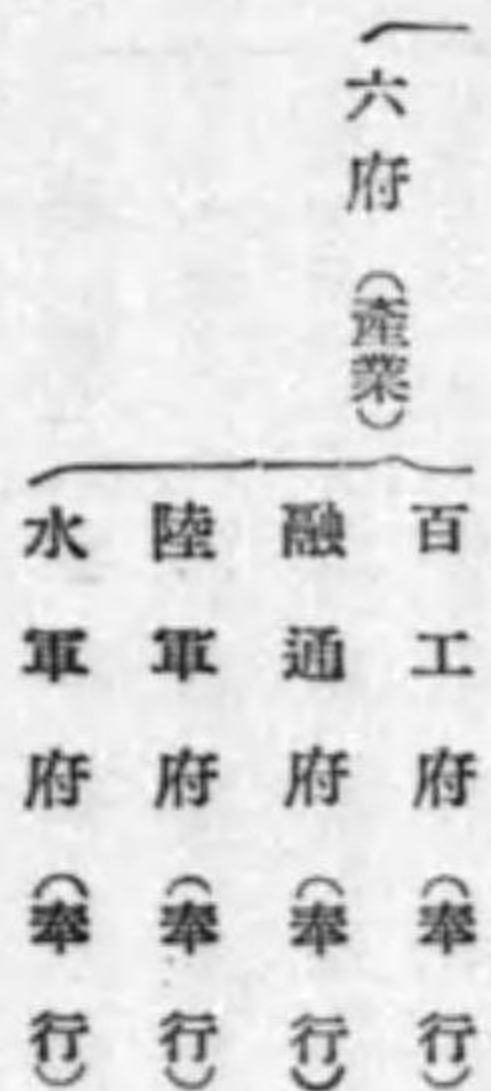 六府（産業）
百工府（奉行）
融通府（奉行）
陸軍府（奉行）
水軍府（奉行）